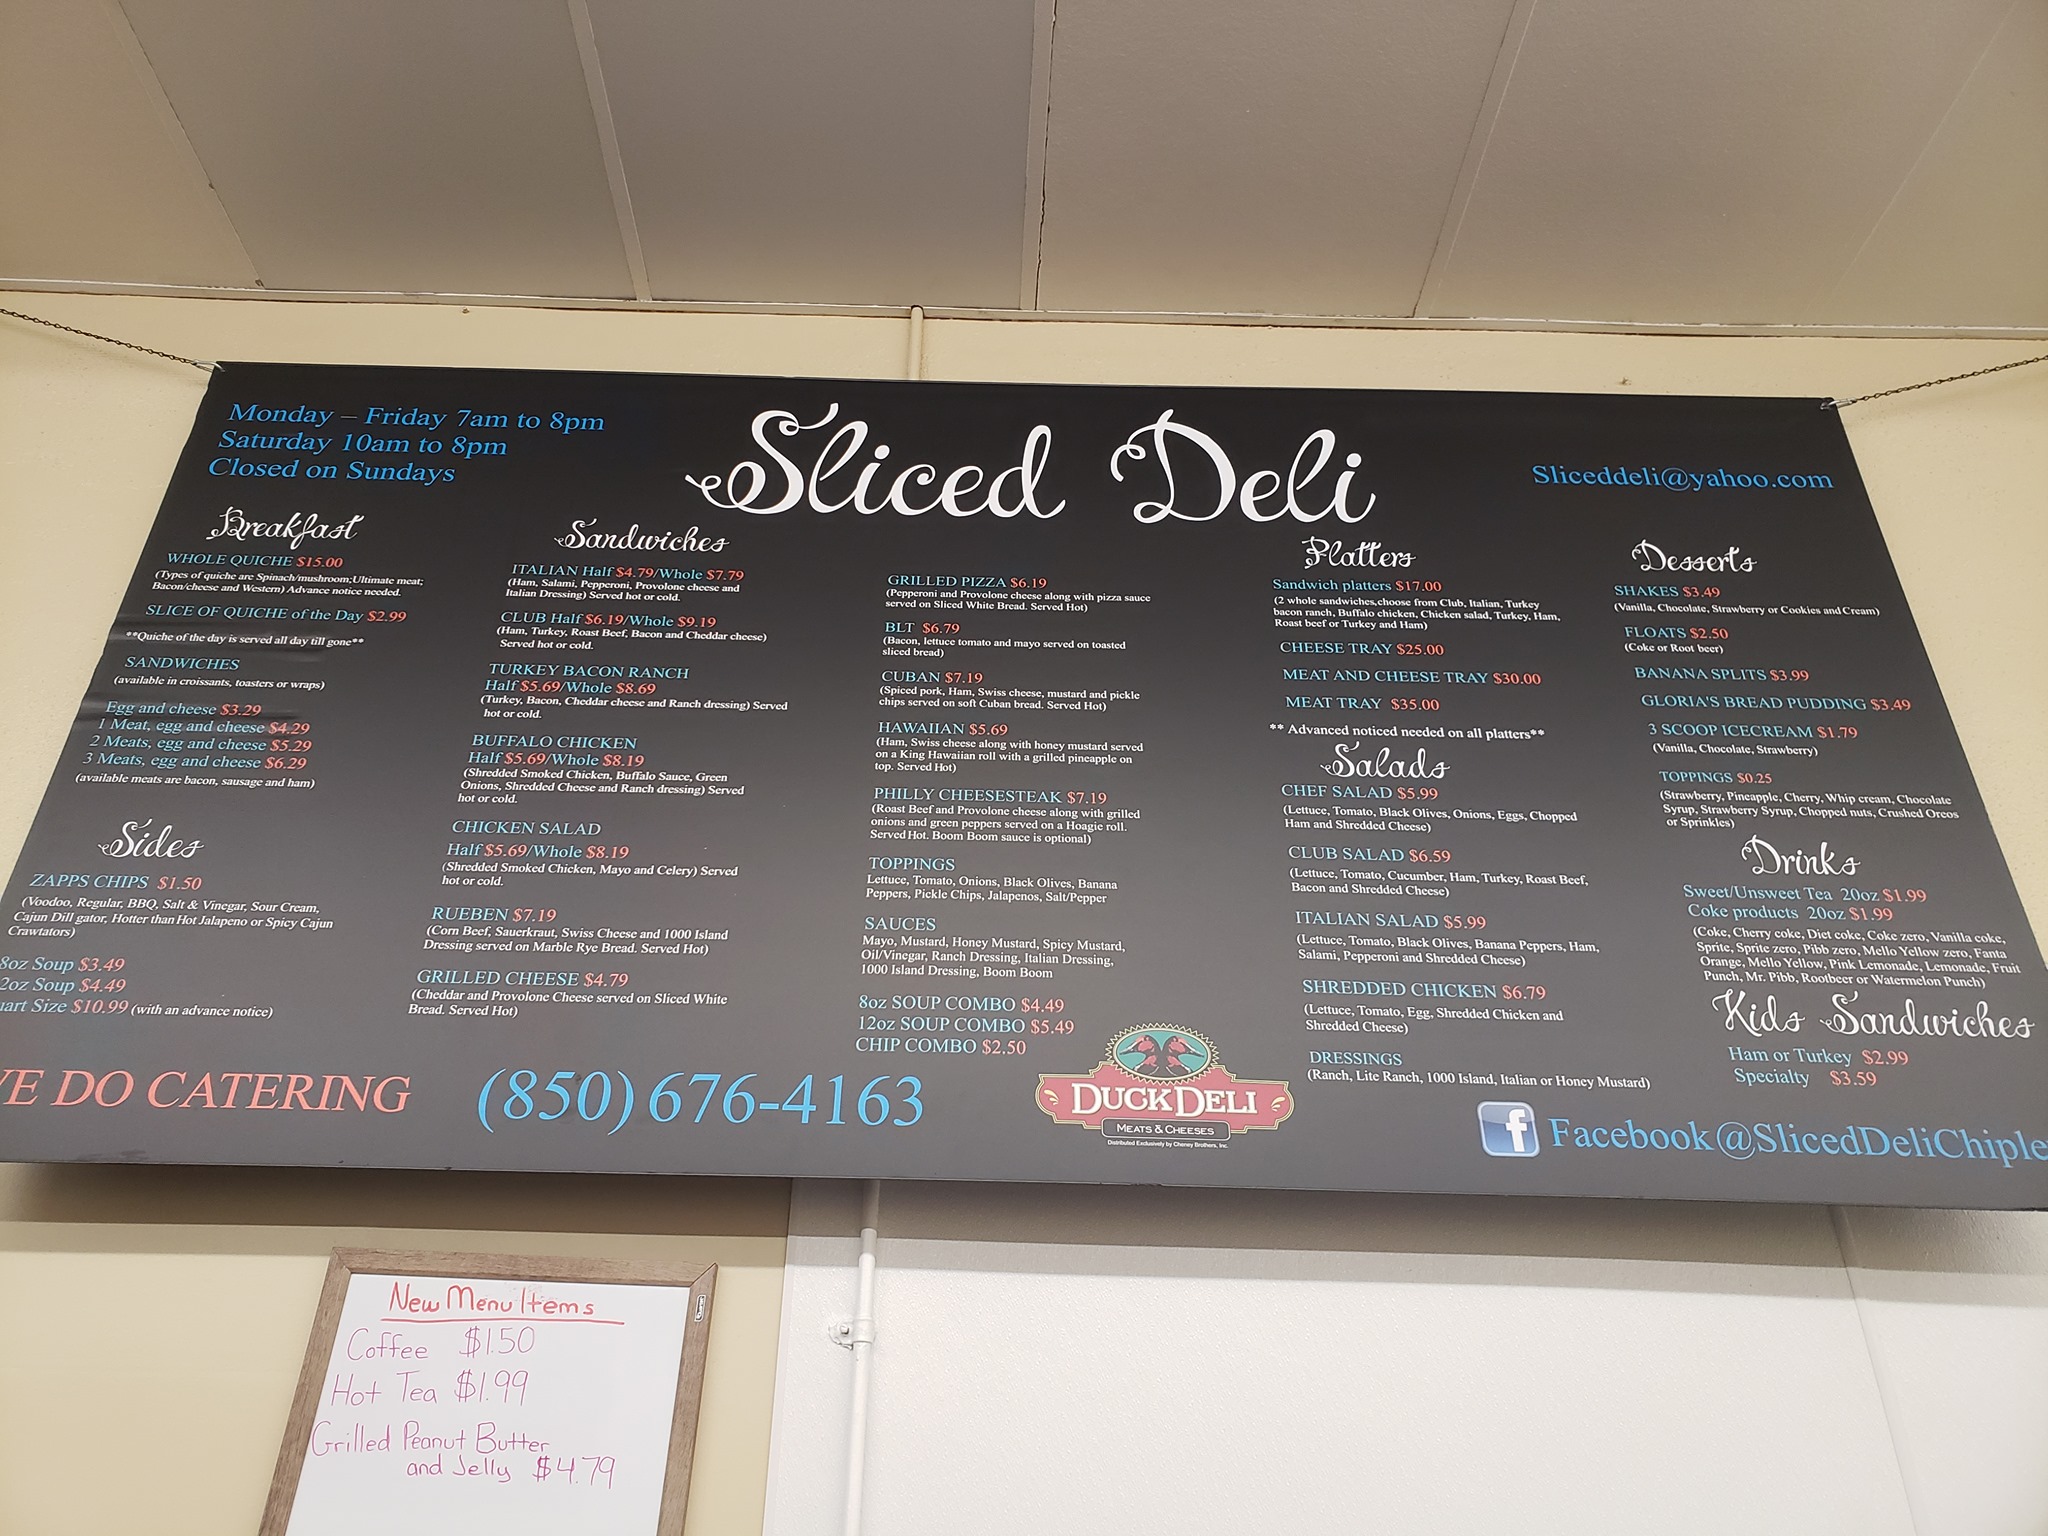 Sliced Deli
Monday – Friday 7am to 8pm
Saturday 10am to 8pm
Closed on Sundays
Sliceddeli@yahoo.com
Breakfast
WHOLE QUICHE $15.00
(Types of quiche are Spinach/mushroom;Ultimate meat;
Bacon/cheese and Western) Advance notice needed.
SLICE OF QUICHE of the Day $2.99
**Quiche of the day is served all day till gone**
SANDWICHES
(available in croissants, toasters or wraps)
Egg and cheese $3.29
1 Meat, egg and cheese $4.29
2 Meats, egg and cheese $5.29
3 Meats, egg and cheese $6.29
(available meats are bacon, sausage and ham)
Sides
ZAPPS CHIPS $1.50
(Voodoo, Regular, BBQ, Salt & Vinegar, Sour Cream,
Cajun Dill gator, Hotter than Hot Jalapeno or Spicy Cajun
Crawtators)
8oz Soup $3.49
2oz Soup $4.49
uart Size $10.99 (with an advance notice)
Sandwiches
ITALIAN Half $4.79/Whole $7.79
(Ham, Salami, Pepperoni, Provolone cheese and
Italian Dressing) Served hot or cold.
CLUB Half $6.19/Whole $9.19
(Ham, Turkey, Roast Beef, Bacon and Cheddar cheese)
Served hot or cold.
TURKEY BACON RANCH
Half $5.69/Whole $8.69
(Turkey, Bacon, Cheddar cheese and Ranch dressing) Served
hot or cold.
BUFFALO CHICKEN
Half $5.69/Whole $8.19
(Shredded Smoked Chicken, Buffalo Sauce, Green
Onions, Shredded Cheese and Ranch dressing) Served
hot or cold.
CHICKEN SALAD
Half $5.69/Whole $8.19
(Shredded Smoked Chicken, Mayo and Celery) Served
hot or cold.
RUEBEN $7.19
(Corn Beef, Sauerkraut, Swiss Cheese and 1000 Island
Dressing served on Marble Rye Bread. Served Hot)
GRILLED CHEESE $4.79
(Cheddar and Provolone Cheese served on Sliced White
Bread. Served Hot)
GRILLED PIZZA $6.19
(Pepperoni and Provolone cheese along with pizza sauce
served on Sliced White Bread. Served Hot)
BLT $6.79
(Bacon, lettuce tomato and mayo served on toasted
sliced bread)
CUBAN $7.19
(Spiced pork, Ham, Swiss cheese, mustard and pickle
chips served on soft Cuban bread. Served Hot)
HAWAIIAN $5.69
(Ham, Swiss cheese along with honey mustard served
on a King Hawaiian roll with a grilled pineapple on
top. Served Hot)
PHILLY CHEESESTEAK $7.19
(Roast Beef and Provolone cheese along with grilled
onions and green peppers served on a Hoagie roll.
Served Hot. Boom Boom sauce is optional)
TOPPINGS
Lettuce, Tomato, Onions, Black Olives, Banana
Peppers, Pickle Chips, Jalapenos, Salt/Pepper
SAUCES
Mayo, Mustard, Honey Mustard, Spicy Mustard,
Oil/Vinegar, Ranch Dressing, Italian Dressing,
1000 Island Dressing, Boom Boom
8oz SOUP COMBO $4.49
12oz SOUP COMBO $5.49
CHIP COMBO $2.50
Platters
Sandwich platters $17.00
(2 whole sandwiches,choose from Club, Italian, Turkey
bacon ranch, Buffalo chicken, Chicken salad, Turkey, Ham,
Roast beef or Turkey and Ham)
CHEESE TRAY $25.00
MEAT AND CHEESE TRAY $30.00
MEAT TRAY $35.00
** Advanced noticed needed on all platters**
Salads
CHEF SALAD $5.99
(Lettuce, Tomato, Black Olives, Onions, Eggs, Chopped
Ham and Shredded Cheese)
CLUB SALAD $6.59
(Lettuce, Tomato, Cucumber, Ham, Turkey, Roast Beef,
Bacon and Shredded Cheese)
ITALIAN SALAD $5.99
(Lettuce, Tomato, Black Olives, Banana Peppers, Ham,
Salami, Pepperoni and Shredded Cheese)
SHREDDED CHICKEN $6.79
(Lettuce, Tomato, Egg, Shredded Chicken and
Shredded Cheese)
DRESSINGS
(Ranch, Lite Ranch, 1000 Island, Italian or Honey Mustard)
Desserts
SHAKES $3.49
(Vanilla, Chocolate, Strawberry or Cookies and Cream)
FLOATS $2.50
(Coke or Root beer)
BANANA SPLITS $3.99
GLORIA'S BREAD PUDDING $3.49
3 SCOOP ICECREAM $1.79
(Vanilla, Chocolate, Strawberry)
TOPPINGS $0.25
(Strawberry, Pineapple, Cherry, Whip cream, Chocolate
Syrup, Strawberry Syrup, Chopped nuts, Crushed Oreos
or Sprinkles)
Drinks
Sweet/Unsweet Tea 20oz $1.99
Coke products 20oz $1.99
(Coke, Cherry coke, Diet coke, Coke zero, Vanilla coke,
Sprite, Sprite zero, Pibb zero, Mello Yellow zero, Fanta
Orange, Mello Yellow, Pink Lemonade, Lemonade, Fruit
Punch, Mr. Pibb, Rootbeer or Watermelon Punch)
Kids Sandwiches
Ham or Turkey $2.99
Specialty $3.59
E DO CATERING (850) 676-4163
DUCK DELI
MEATS & CHEESES
Distributed Exclusively by Cheney Brothers, Inc.
f Facebook@SlicedDeliChiple
New Menu Items
Coffee $1.50
Hot Tea $1.99
Grilled Peanut Butter
and Jelly $4.79